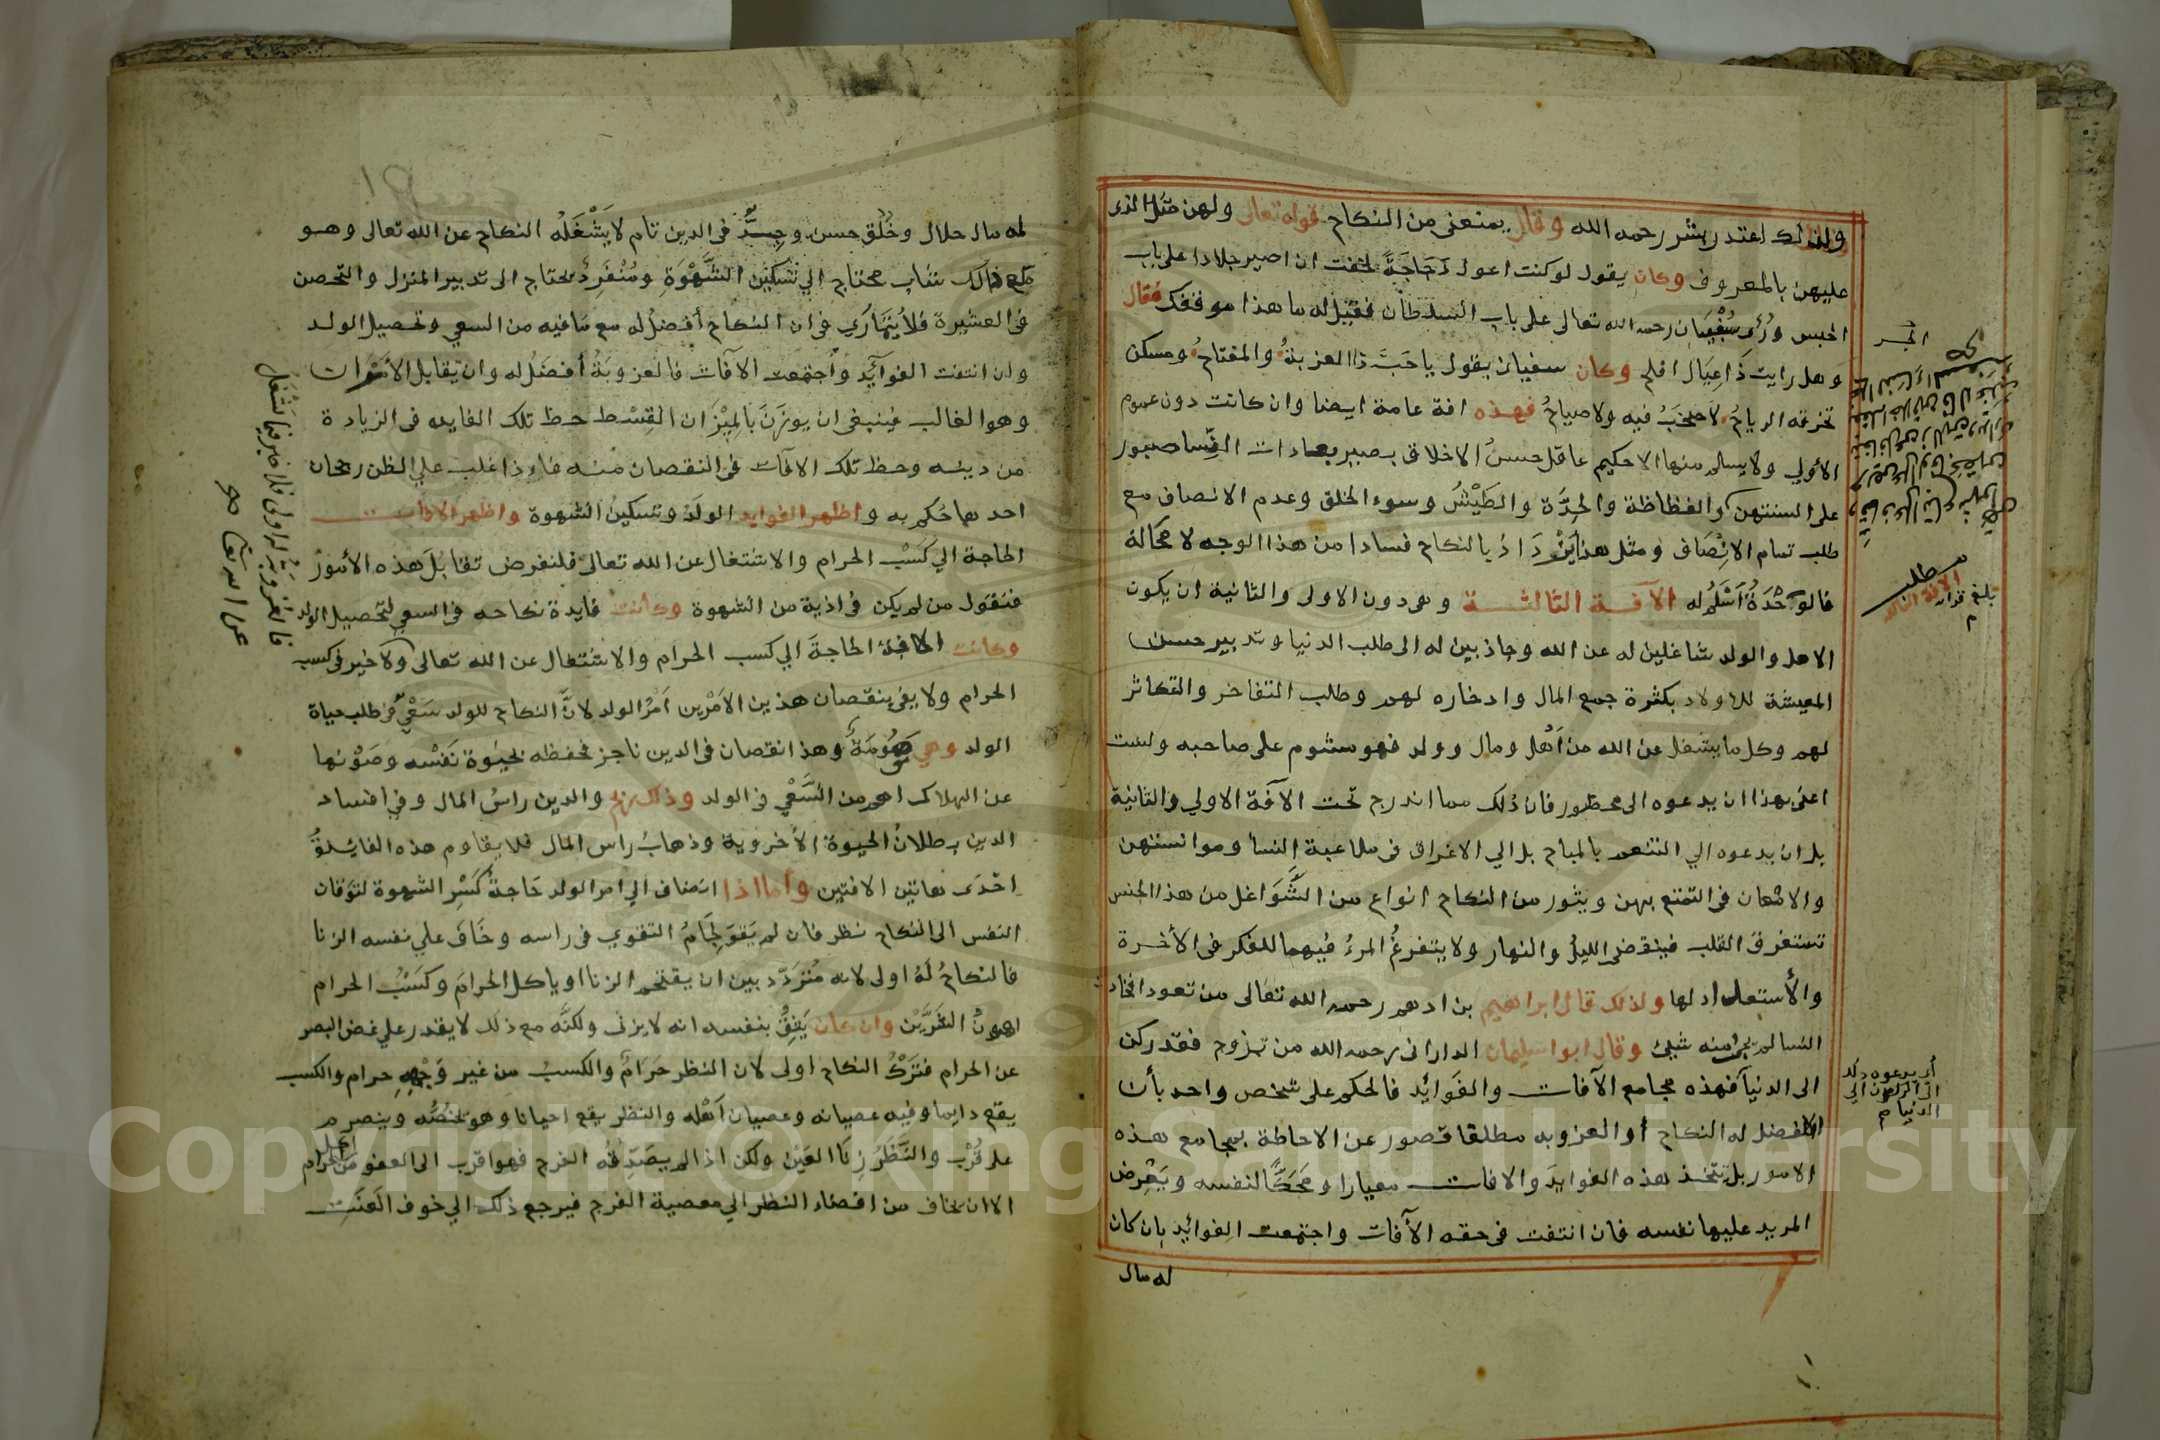 ولذلك اعتذر بشر رحمه الله وقال يمنعنى من النكاح قوله تعالى ولهن مثل الذى
عليهن بالمعروف وكان يقول لوكنت اعول دَجَاجَةً لخفت ان اصير جلادا على باب
الحبس ورُؤى سُفْيَان رحمه الله تعالى على باب السلطان فقيل له ما هذا موقفك فقال
وهل رايت ذَاعِيَال افلح وكان سفيان يقول ياحَبَّ ذا العزبةُ والمفتاحُ ومسكن
تخرقه الرياحُ لا صخَبُ فيه ولا صياحُ فهذه افة عامة ايضا وان كانت دون عموم
الأولي ولا يسلم منها الا حكيم عاقل حسنُ الاخلاق بصير بعادات النِّسا صبور
على السنتهن والفظاظة والحِدَّة والطَيْشُ وسوء الخلق وعدم الانصاف مع
طلب تمام الانْصَاف ومثل هذا يَزْ دَادُ بالنكاح فسادا من هذا الوجه لا محالة
فالوَحْدَةُ اَسْلَمُ له الآفــة الثالثــــة وهى دون الاولى والثانية ان يكون
الاهل والولد شاغلين له عن الله وجاذبين له الى طلب الدنيا وتدبير حسن
المعيشة للاولاد بكثرة جمع المال وادخاره لهم وطلب التفاخر والتكاثر
لهم وكل ما يشغل عن الله من اَهْل ومال وولد فهو مشوم على صاحبه ولست
اعنى بهذا ان يدعوه الى محظور فان ذلك مما اندرج تحت الآفة الاولي والثانية
بل ان يدعوه الي التنعم بالمباح بل الي الاغراق فى ملاعبة النسا وموانستهن
والامْعان فى التمتع بهن ويثور من النكاح انواع من الشَّوَاغل من هذا الجنس
تستغرق القلب فينقضى الليلُ والنهار ولا يتفرغُ المرءُ فيهما للفكر فى الأخرة
والأستعداد لها ولذلك قال ابراهيم بن ادهم رحمه الله تعالى من تعود افخاذ
النسا لم يجئ منه شيئ وقال ابوا سليمان الدارانى رحمه الله من تزوج فقد ركن
الى الدنيا فهذه مجامع الآفات والفَوائِد فالحكم على شخص واحد بأن
الافضل له النكاح أو العزوبه مطلقا قصور عن الاحاطة بمجامع هذه
الامور بل تتخذ هذه الفوايد والافات معيارا ومَحَكًّا لنفسه ويَعْرِض
المريد عليها نفسه فان انتفت فى حقه الآفات واجتمعت الفوائد بان كان
له مال
مطلب
الافة الثالثه
بلغ قراة
أى يدعوه ذلك
الى الركون الي
الدنيا م
له مال حلال وخُلُق حسن وجِدٌّ فى الدين تام لا يَشْغَلُه النكاح عن الله تعالى وهو
مع ذلك شاب محتاج الي تسْكِين الشَّهْوَةِ ومُنْفَرِدٌ يحتاج الى تدبير المنزل والتحصن
فى العشيرة فلا يُتَمَارَي فى ان النكاح أفضلُ له مع مافيه من السعي وتحصيل الولد
وان انتفت الفوآئِد وَاجتَمعت الآفات فالعُزوبَةُ أفضَلُ له وان تقابل الأمْران
وهو الغالب فينبغى ان يوزَنَ بالمِيْزَان القِسْط حظ تلك الفايده فى الزيادة
من دينه وحظ تلك الافات فى النقصان منه فاءذا غلب علي الظن رجحان
احدهما حُكم به واظهر الفوايد الولَد وتسكينُ الشهوة واظهر الافات
الحاجة الي كَسْب الحرام والاشتغال عن الله تعالى فلنفرض تقابُلَ هذه الأمورْ
فنقول من لم يكن فى اذية من الشهوة وكانت فايدة نكاحه فى السعي لتحصيل الولد
وكانت الافة الحاجةَ الي كسب الحرام والاشتغال عن الله تعالى ولاخير فى كسب
الحرام ولا يفى بنقصان هذين الامَرْين اَمْرُ الولد لانَّ النكاح للولد سَعْيٌ فى طلب حياة
الولد وهي مَوْهُومَةٌ وهذا نقصان فى الدين ناجز فحفظه لحيٰوة نَفْسه وصَوْنها
عن الهلاك اهم من السَّعْي فى الولد وذلك ربح والدين راسُ المال وفي افساد
الدين بطلانُ الحيوة الأخروية وذهابُ راس المال فلا يقاوم هذه الفايدةُ
احْدَى هاتين الافتين وأما اذا انضاف الي امر الولد حَاجةُ كَسْرِ الشهوة لتوَقان
النفس الى النكاح نظر فان لم يَقوَ لِجَامُ التقوي فى راسه وخَافَ علي نفسه الزنا
فالنكاحُ لهُ اولى لانه مُتَرَدّد بين ان يقتحم الزنا او ياكل الحرامَ وكَسْبُ الحرام
اهونُ الشَّرَّيْن وان كان يَثِقُ بنفسه انه لا يزنى ولكنَّه مع ذلك لا يقدر علي غض البصر
عن الحرام فتَرْكُ النكاح اولى لان النظر حَرَامٌ والكسبُ من غير وَجْهِهِ حرام والكسب
يقع دايما وفيه عصيانه وعصيان اَهْله والنظر يقع احيانا وهو يخُصُّه وينصرم
على قُرْب والنَّظَرُ زِنَا العَيْن ولكن اذا لم يصَدِّقْه الفرج فهوا قرب الى العفو من اكل الحرام
الا ان يخاف من افضاء النظر الي معصية الفرج فيرجع ذلك الي خوف العَنَتِ